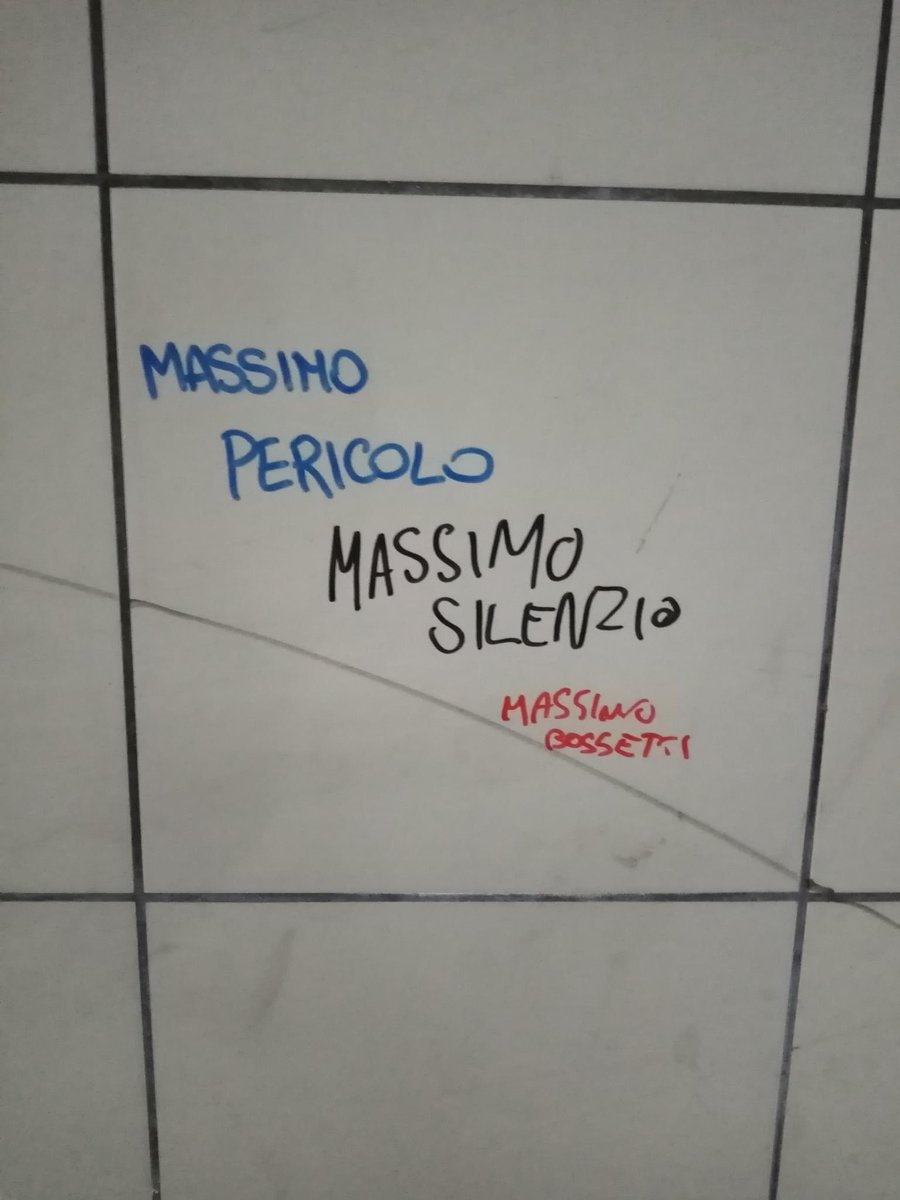 MASSIMO
PERICOLO
MASSIMO
SILENZIO
MASSIMO
BOSSETTI